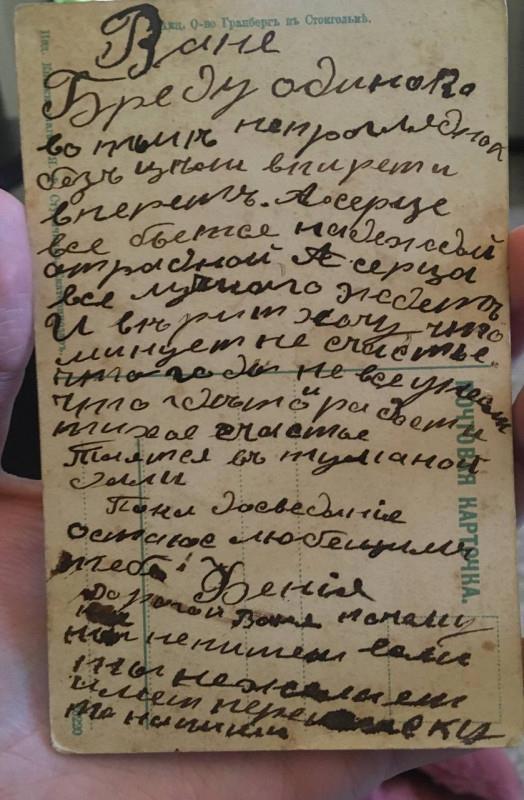 Акц. О-во Гранбергъ въ Стокгольмѣ.
Ване
Бреду одиноко
во тьмѣ непроглядной
безъ цѣли впирети
вперетъ. А серце
все бьетсе надеждой
отрадной А серца
все лутчаго ждетъ
И вѣрит хочу что
минует не счастье.
что года не все унесли
что гдѣто и радости
тихое счастье
Таятся въ туманой
дали
Пока досведаніе
остаюс любещимъ
тебе! Феніа
Дорогой Ваня почаму
ты непишеш если
ты нежелаеш
имет переписки
то напиши
ПОЧТОВАЯ КАРТОЧКА.